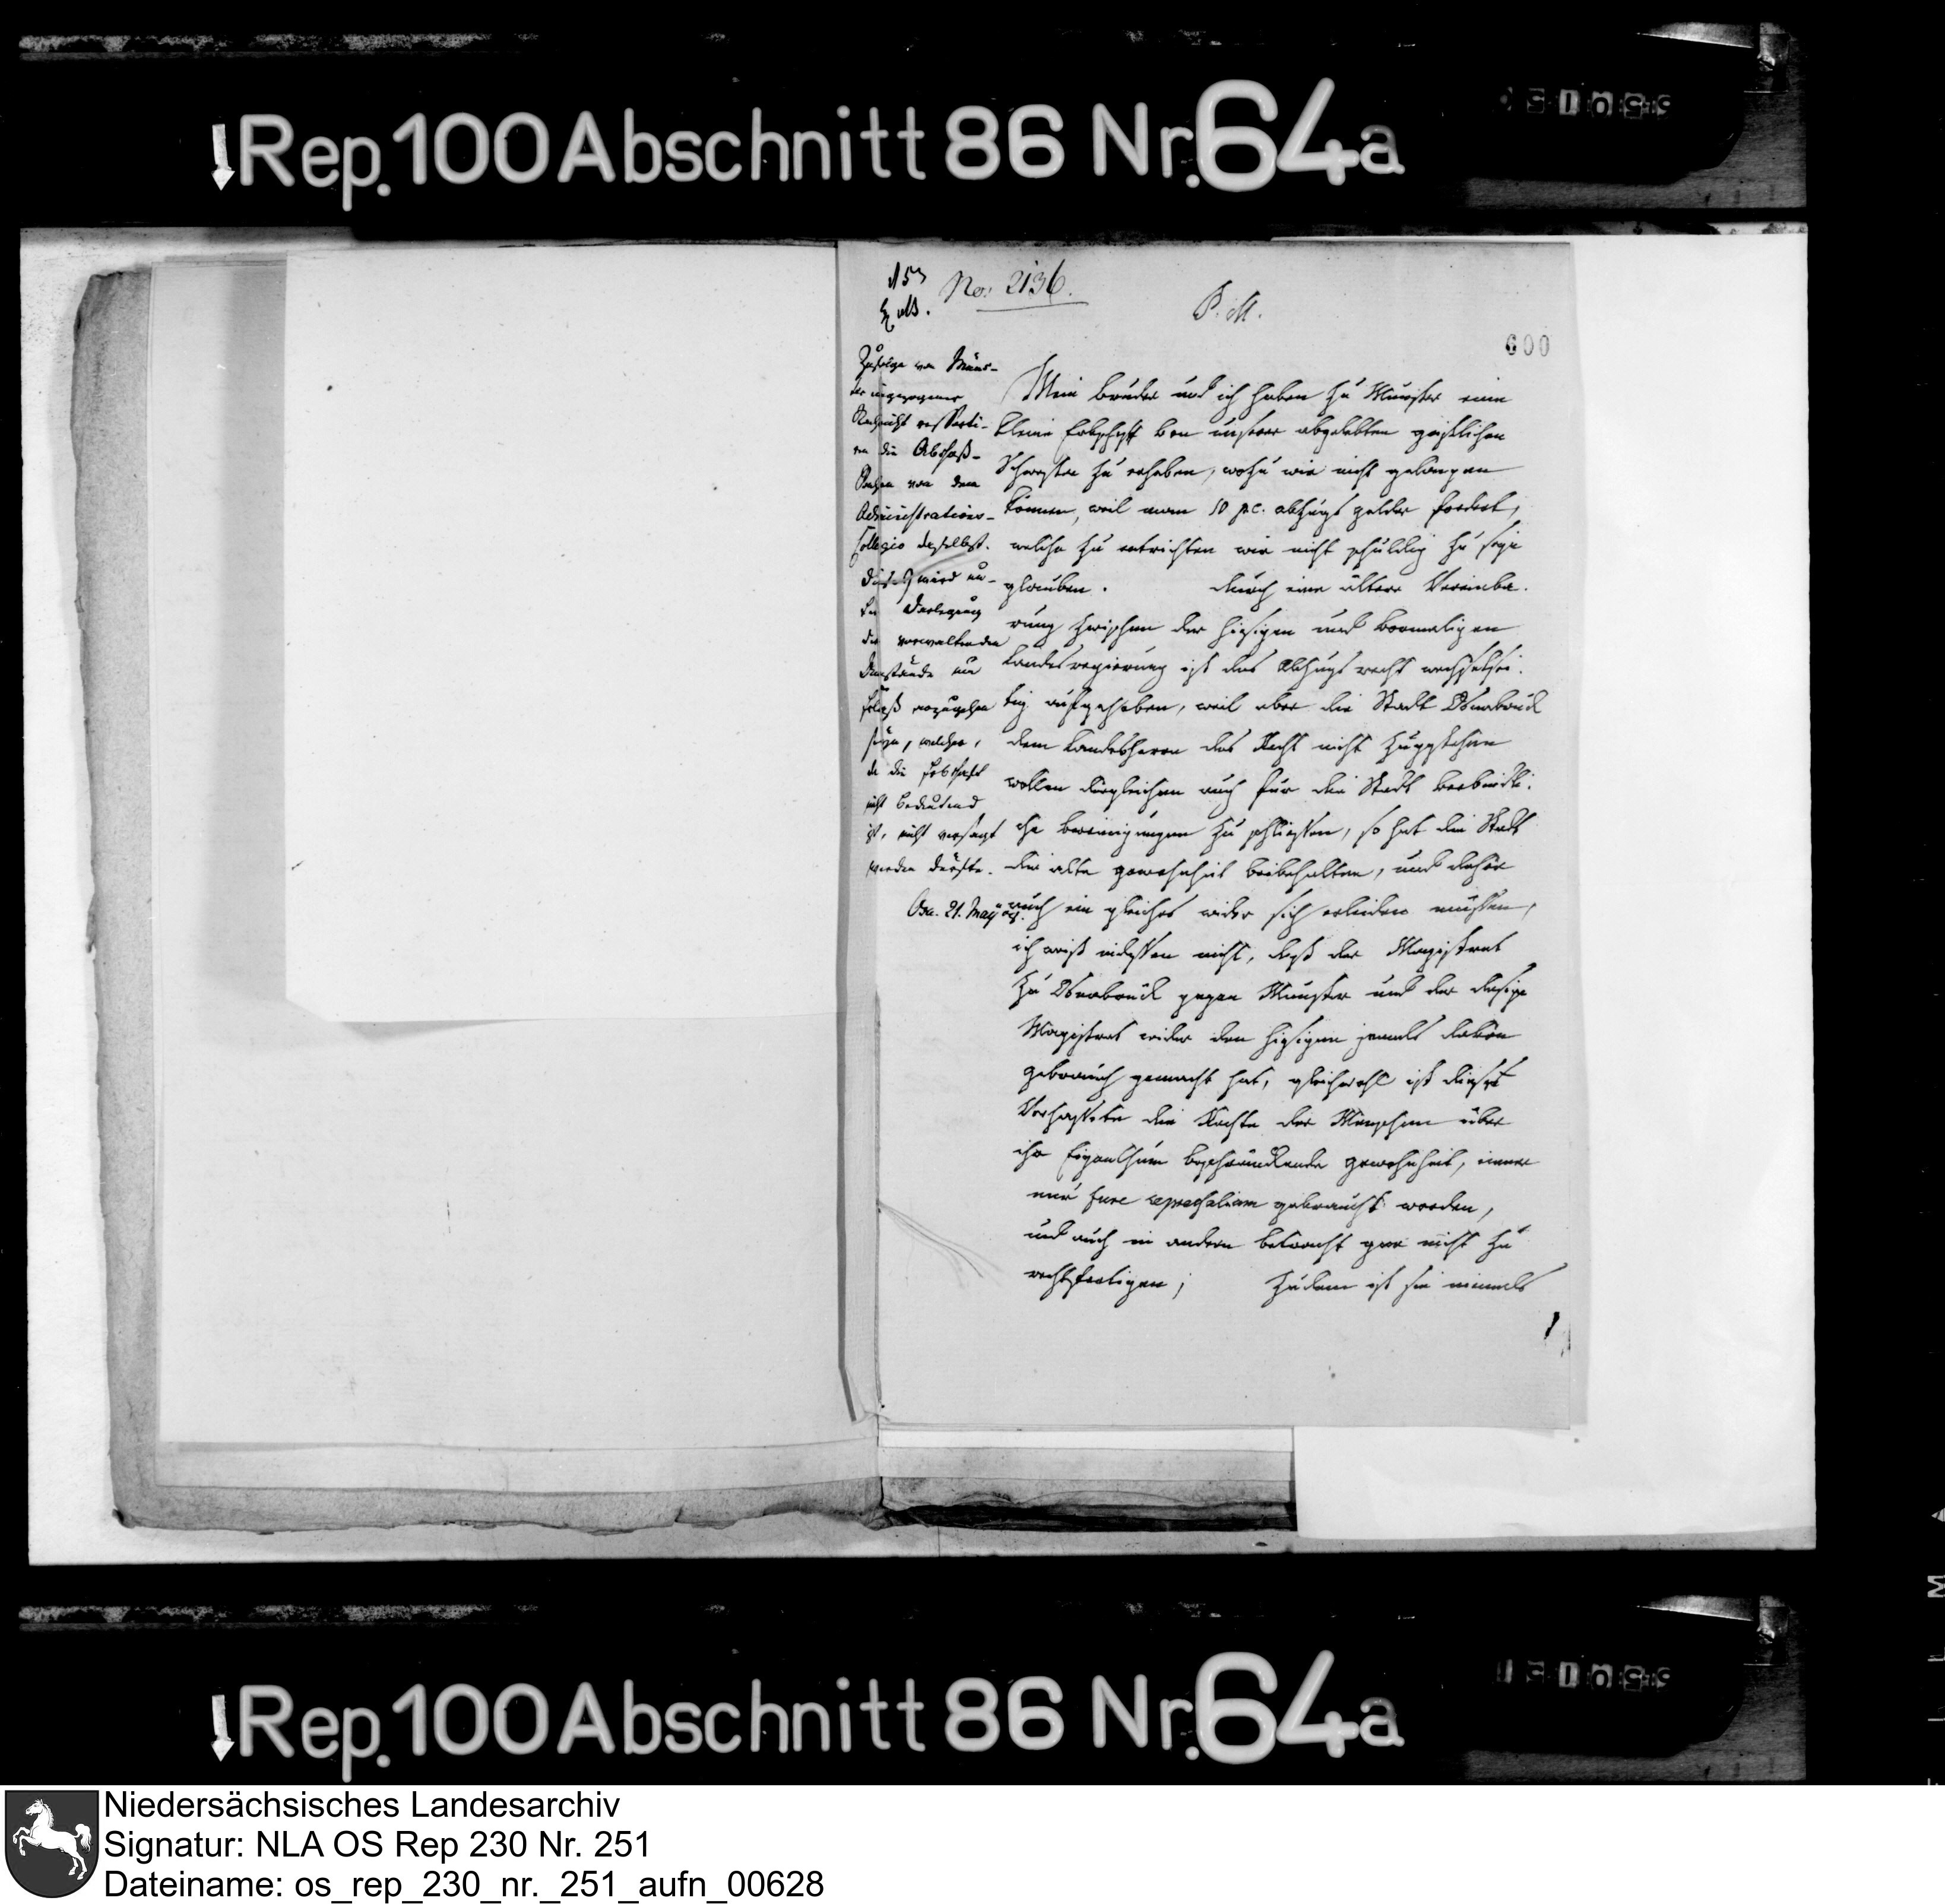 Rep. 100 Abschnitt 86 Nr. 64a
No: 2136.
P. M.
600
Zufolge von Müns-
ter eingezogener
Nachricht ressorti-
ren die Abschoß-
Sachen von dem
Administrations-
Collegio daselbst.
wird un-
ter Darlegung
der vorwaltenden
Umstände um
Erlaß anzugehen
seyn, welcher,
da die Erbschaft
nicht bedeutend
ist, nicht versagt
werden dürfte.
Osn. 21. May
Mein bruder und ich haben zu Münster eine
kleine Erbschafft von unserer abgelebten geistlichen
Schwester zu erheben, wozu wir nicht gelangen
können, weil man 10 p.c. abzugs gelder fordert,
welche zu entrichten wir nicht schuldig zu seyn
glauben. durch eine ältere Vereinba-
rung zwischen der hiesigen und vormaligen
Landesregierung ist das Abzugs recht wechselsei-
tig aufgehoben, weil aber die Stadt Osnabrück
dem Landesherrn das Recht nicht zugestehen
wollen dergleichen auch für die Stadt verbindli-
che Vereinigungen zu schliessen, so hat die Stadt
die alte gewohnheit beibehalten, und daher
auch ein gleiches wider sich erleiden müssen,
ich weiß indessen nicht, daß der Magistrat
zu Osnabrück gegen Münster und der dasige
Magistrat wider den hiesigen jemals davon
gebrauch gemacht hat, gleichwohl ist diese
Verhasste die Rechte der Menschen über
ihr Eigenthum beschränkende gewohnheit, immer
nur jure represaliarum gebraucht worden,
und auch in andern betracht gar nicht zu
rechtfertigen; Zudem ist sie niemals
Rep. 100 Abschnitt 86 Nr. 64a
Niedersächsisches Landesarchiv
Signatur: NLA OS Rep 230 Nr. 251
Dateiname: os_rep_230_nr._251_aufn_00628